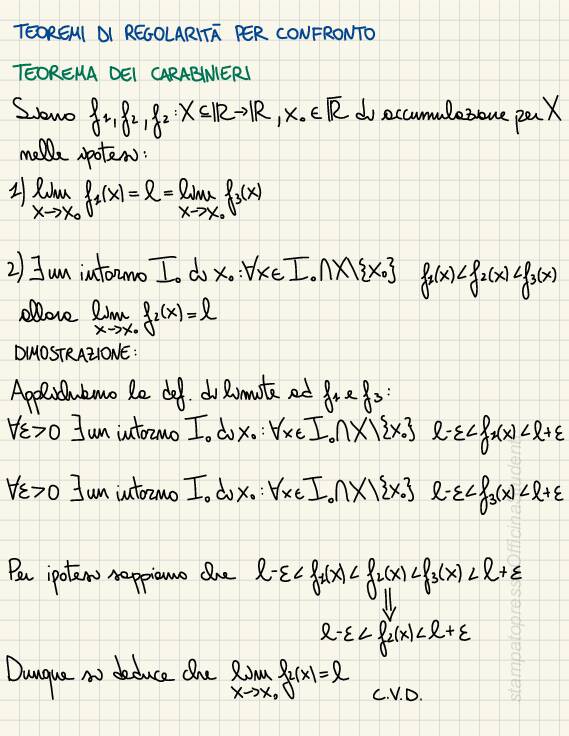 TEOREMI DI REGOLARITÀ PER CONFRONTO
TEOREMA DEI CARABINIERI
Siano f₁, f₂, f₂ : X ⊆ ℝ → ℝ, x₀ ∈ ℝ̅ di accumulazione per X
nelle ipotesi:
1) lim f₁(x) = l = lim f₃(x)
x→x₀ x→x₀
2) ∃ un intorno I₀ di x₀ : ∀x ∈ I₀ ∩ X \ {x₀} f₁(x) < f₂(x) < f₃(x)
allora lim f₂(x) = l
x→x₀
DIMOSTRAZIONE:
Applichiamo la def. di limite ad f₁ e f₃:
∀ε>0 ∃ un intorno I₀ di x₀ : ∀x ∈ I₀ ∩ X \ {x₀} l-ε < f₁(x) < l+ε
∀ε>0 ∃ un intorno I₀ di x₀ : ∀x ∈ I₀ ∩ X \ {x₀} l-ε < f₃(x) < l+ε
Per ipotesi sappiamo che l-ε < f₁(x) < f₂(x) < f₃(x) < l+ε
⇓
l-ε < f₂(x) < l+ε
Dunque si deduce che lim f₂(x) = l
x→x₀ C.V.D.
stampatopressoOfficina